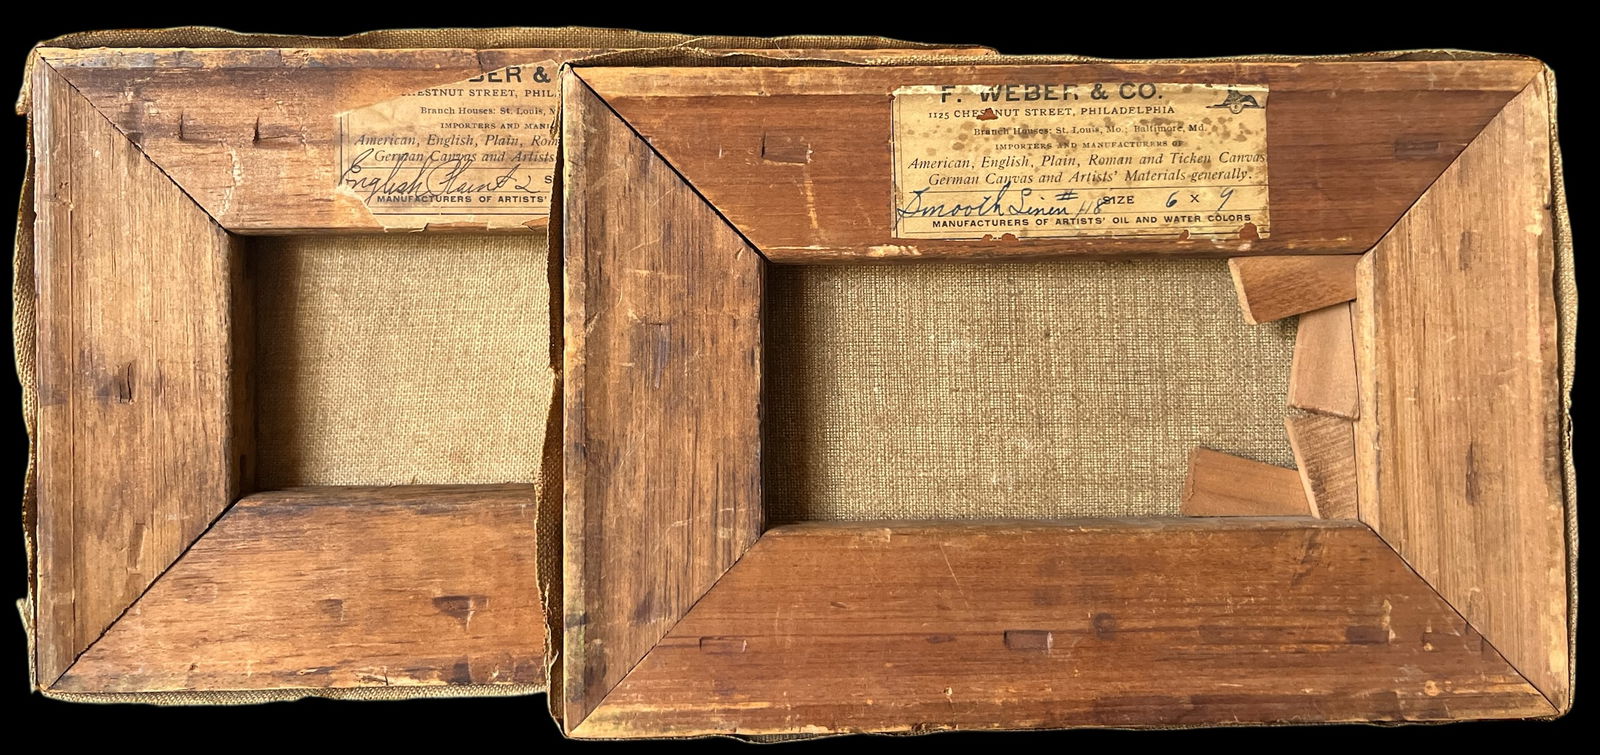 BER &
ESTNUT STREET, PHIL
Branch Houses: St. Louis,
IMPORTERS AND MANU
American, English, Plain, Rom
German Canvas and Artists
English Plain 2 S
MANUFACTURERS OF ARTISTS'
F. WEBER & CO.
1125 CHESTNUT STREET, PHILADELPHIA
Branch Houses: St. Louis, Mo.; Baltimore, Md.
IMPORTERS AND MANUFACTURERS OF
American, English, Plain, Roman and Ticken Canvas
German Canvas and Artists' Materials generally.
Smooth Linen # 118 SIZE 6 X 9
MANUFACTURERS OF ARTISTS' OIL AND WATER COLORS